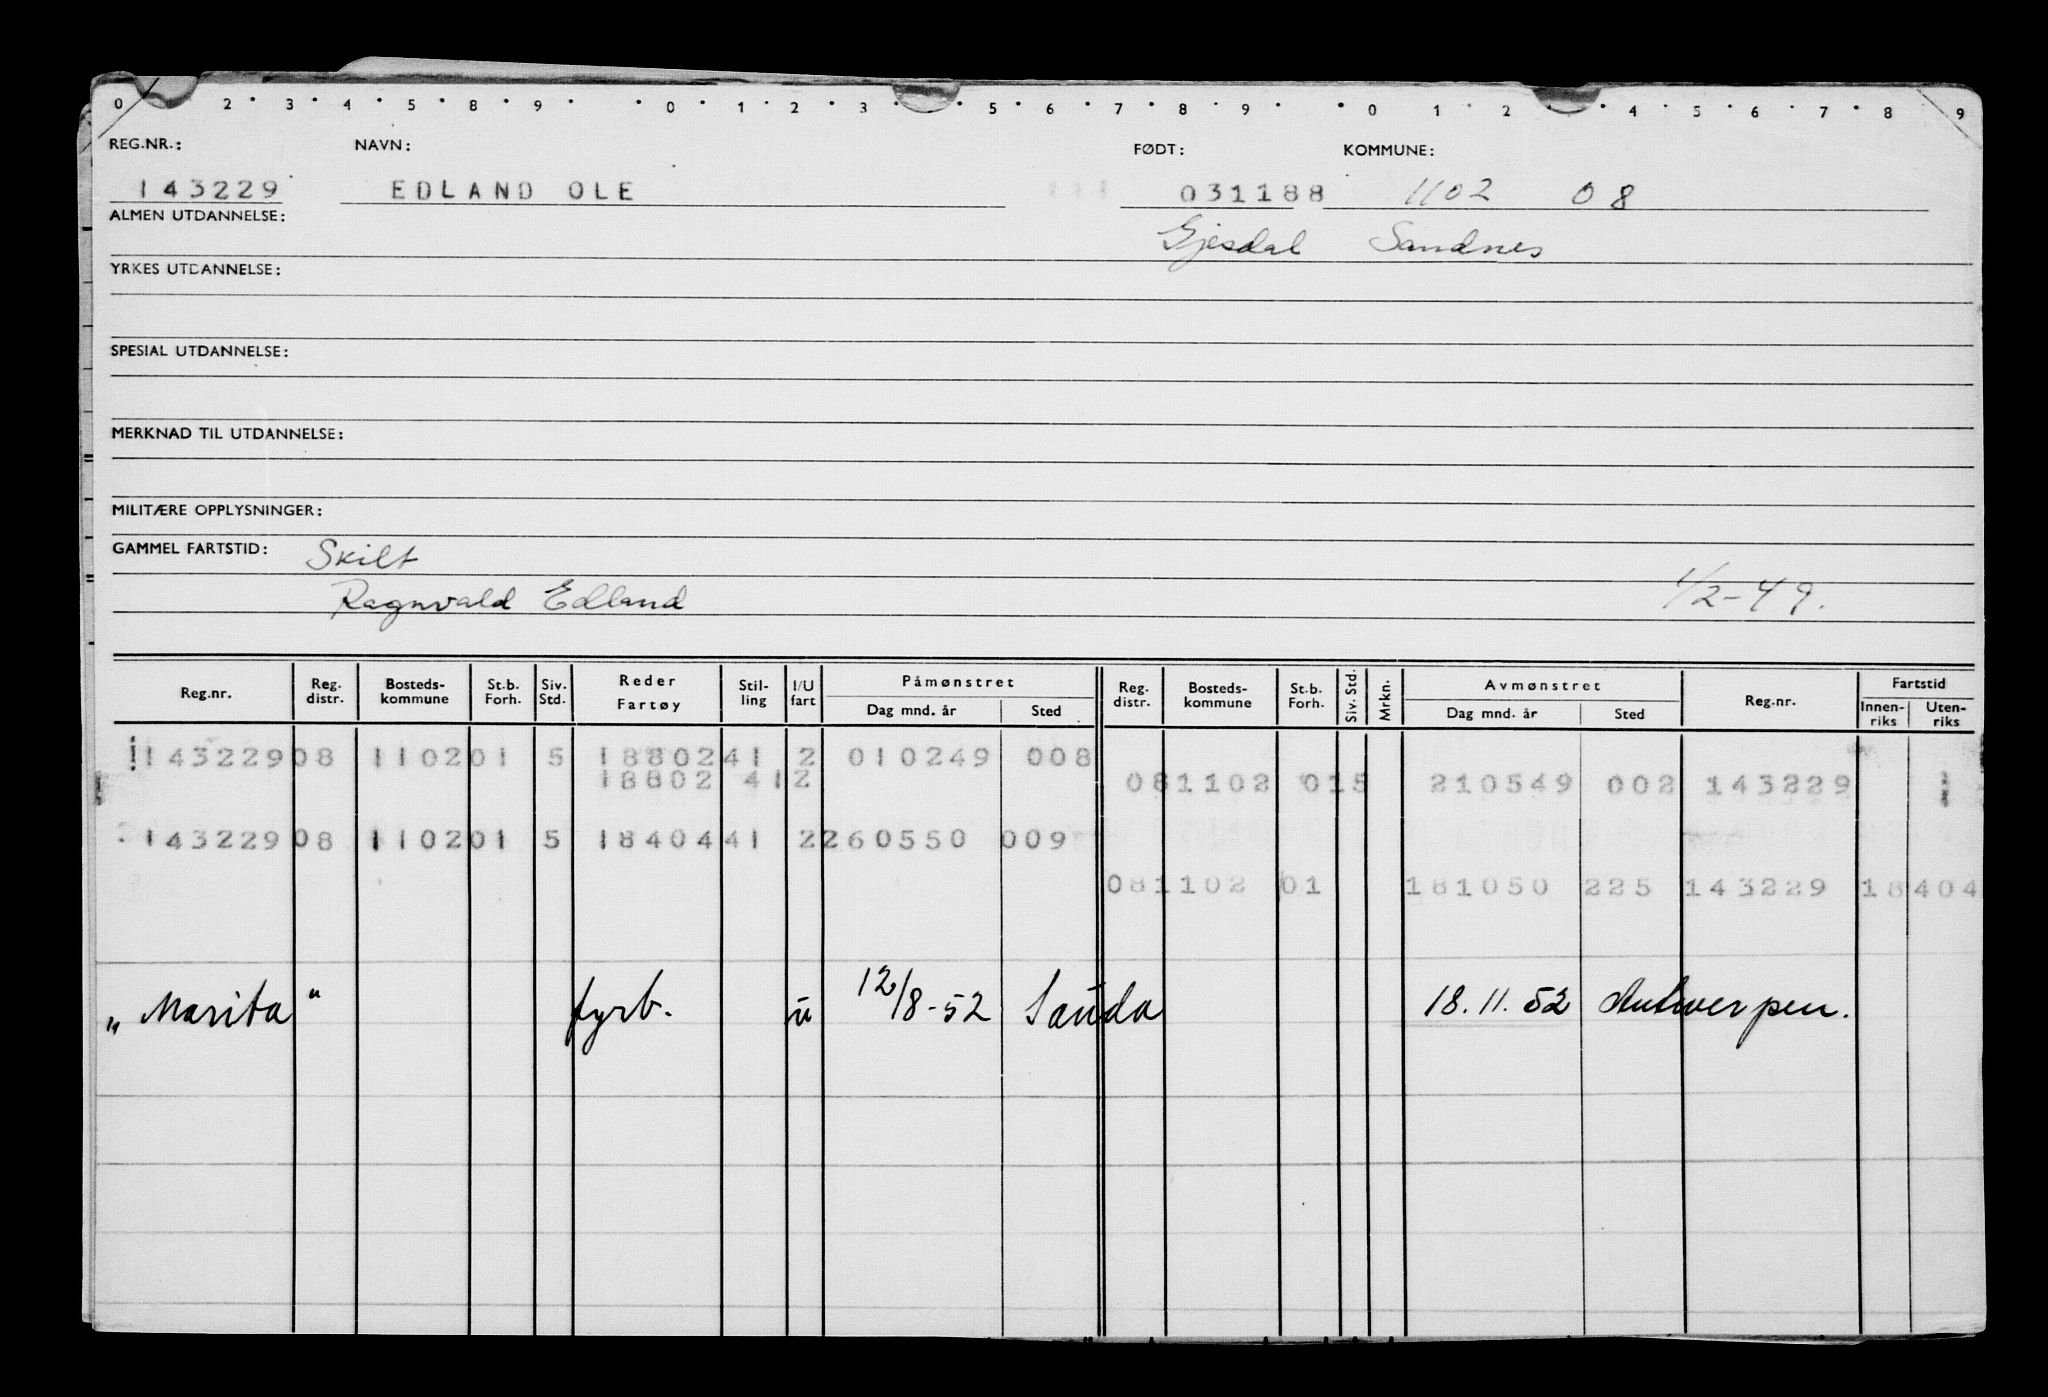 0 2 3 4 5 8 9 0 1 2 3 5 6 7 8 9 0 1 2 4 5 6 7 8 9
REG.NR.: NAVN: FØDT: KOMMUNE:
143229 EDLAND OLE 031188 1102 08
ALMEN UTDANNELSE: Gjesdal Sandnes
YRKES UTDANNELSE:
SPESIAL UTDANNELSE:
MERKNAD TIL UTDANNELSE:
MILITÆRE OPPLYSNINGER:
GAMMEL FARTSTID: Skilt
Ragnvald Edland 1/2-49.
Reg.nr. Reg. distr. Bosteds-kommune St.b. Forh. Siv. Std. Reder Fartøy Stil-ling I/U fart Påmønstret Dag mnd. år Sted Reg. distr. Bosteds-kommune St.b. Forh. Siv. Std. Mrkn. Avmønstret Dag mnd. år Sted Reg.nr. Fartstid Innen-riks Uten-riks
143229 08 1102 01 5 18802 41 2 010249 008
18802 41 2 08 1102 01 5 210549 002 143229
143229 08 1102 01 5 18404 41 2 260550 009
08 1102 01 181050 225 143229 18404
„Marita" fyrb. u 12/8-52 Sauda 18.11.52 Antwerpen.